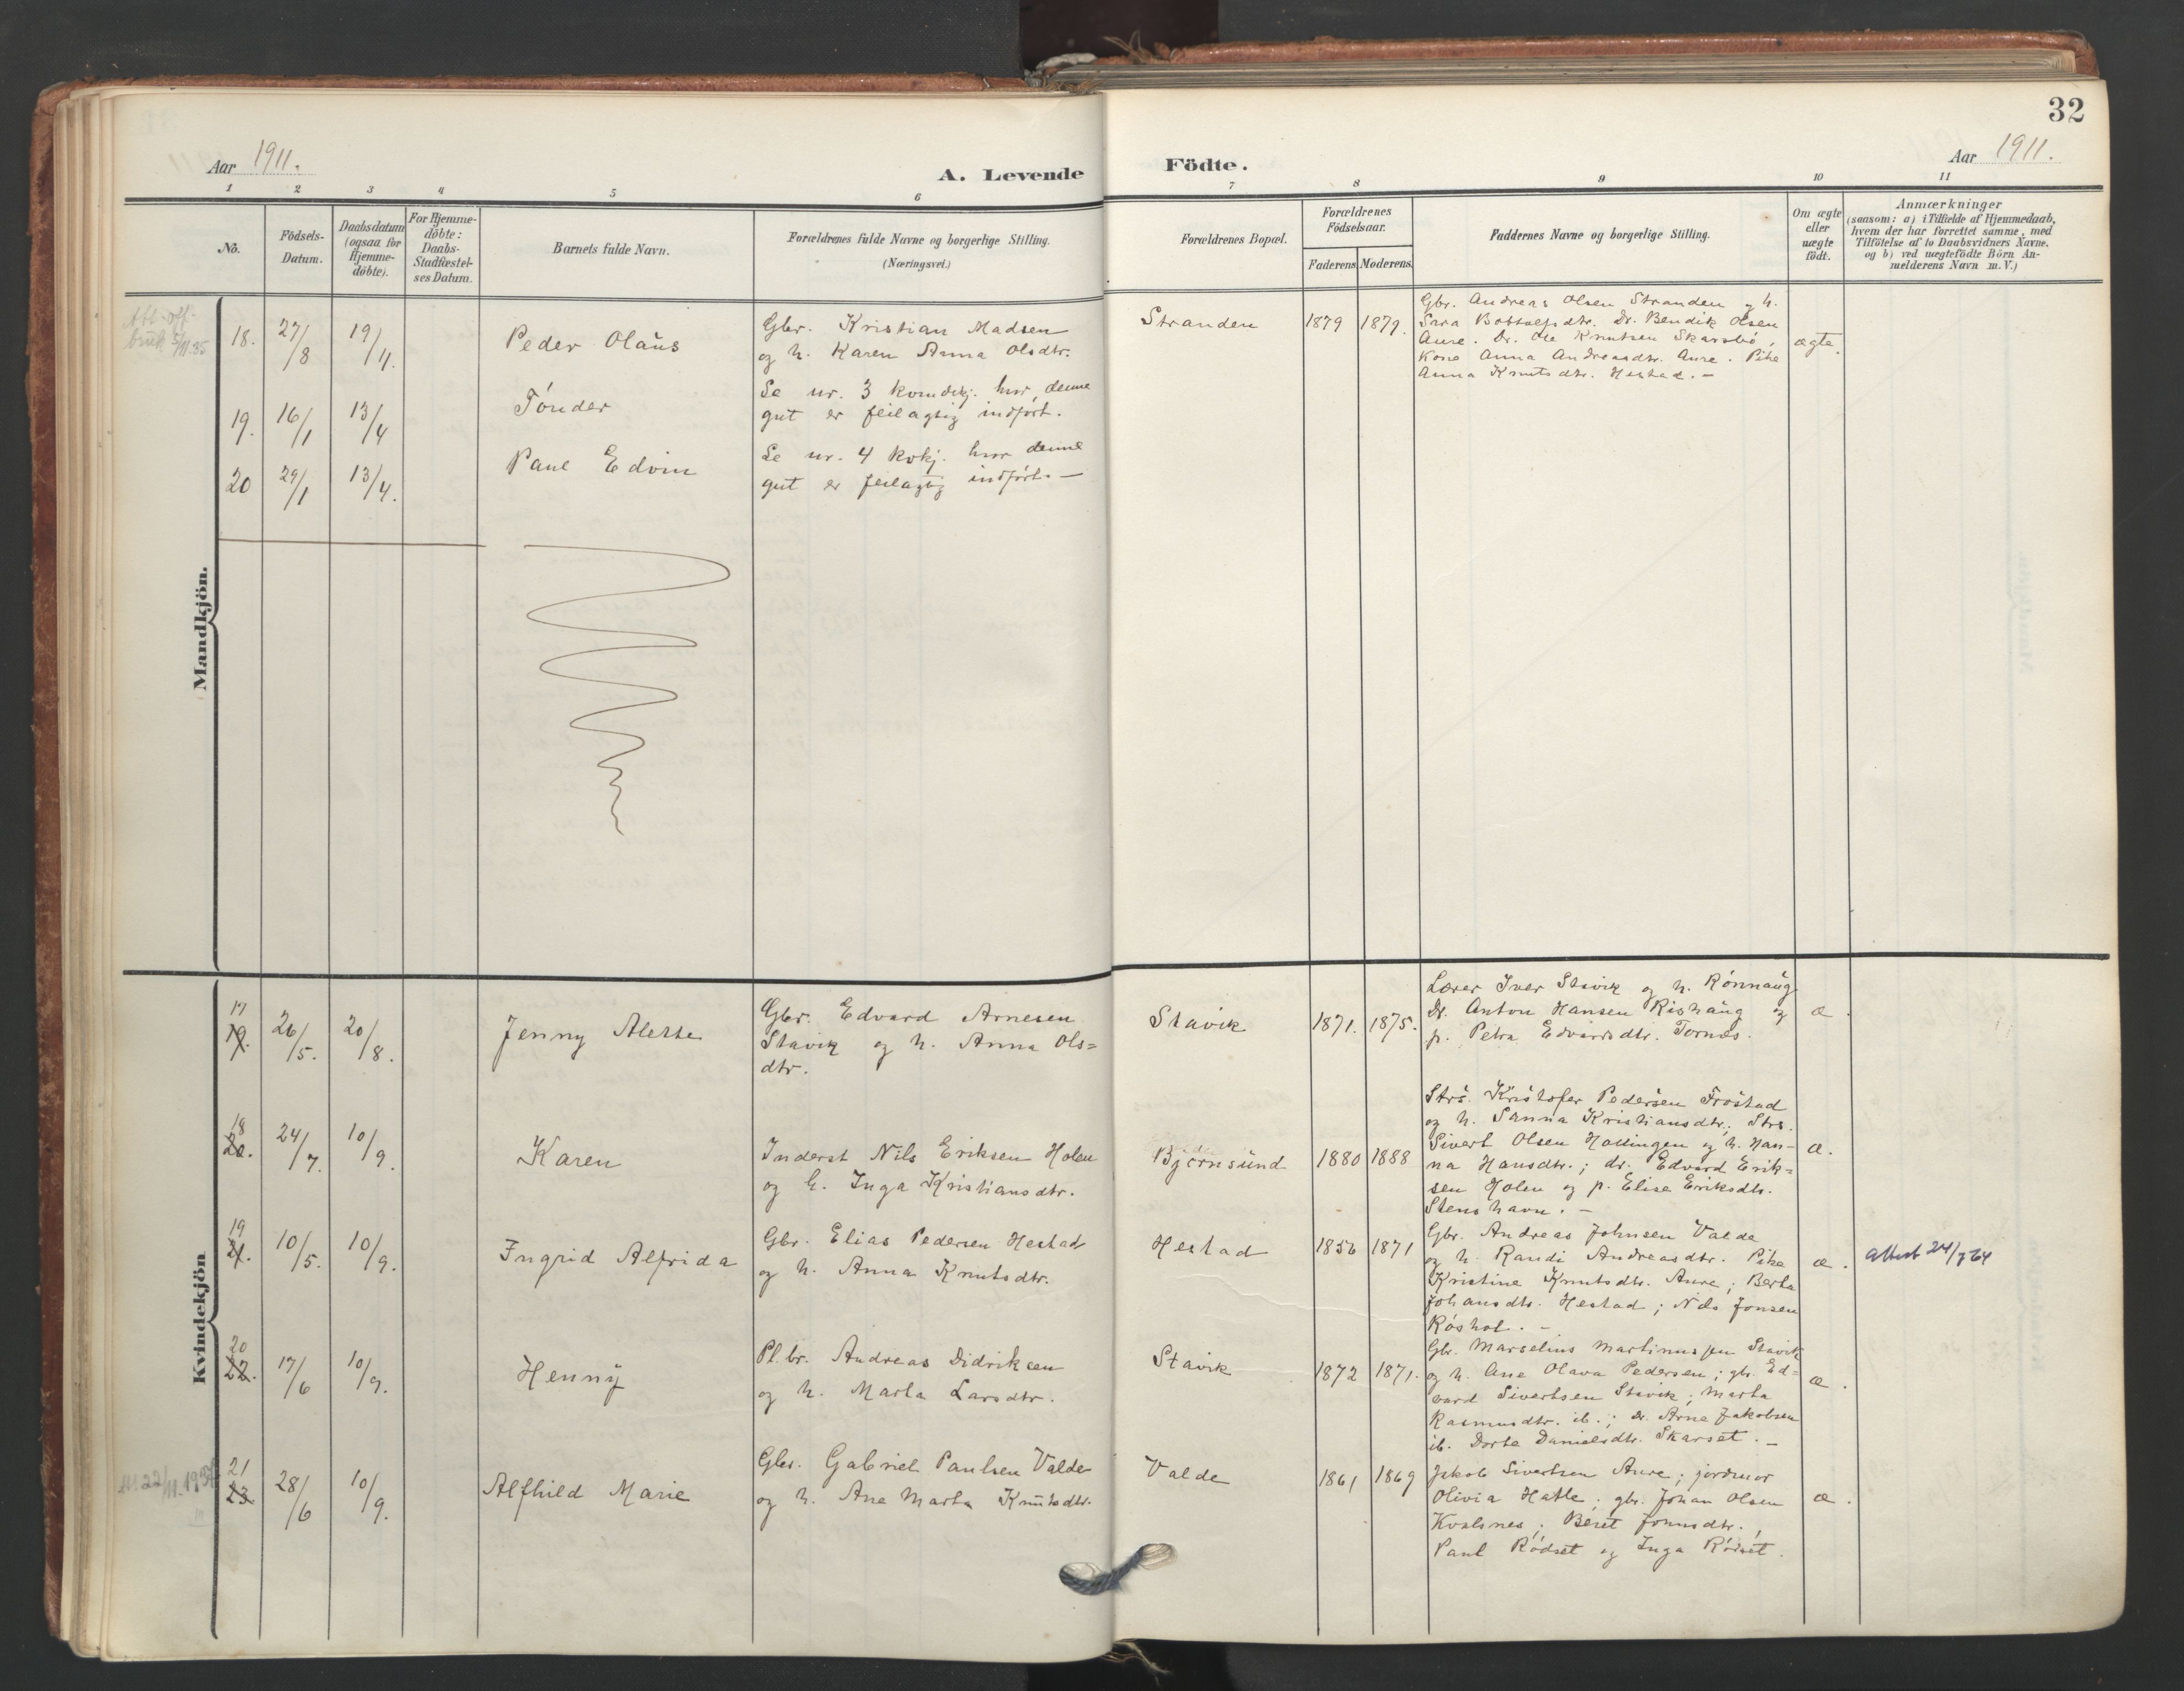 32
Aar 1911.
A. Levende Födte.
Aar 1911.
1 2 3 4 5 6 7 8 9 10 11
No.
Födsels-
Datum.
Daabsdatum
(ogsaa for
Hjemme-
döbte).
For Hjemme-
döbte:
Daabs-
Stadfæstel-
ses Datum.
Barnets fulde Navn.
Forældrenes fulde Navne og borgerlige Stilling.
(Næringsvei.)
Forældrenes Bopæl.
Forældrenes
Födselsaar.
Faderens. Moderens.
Faddernes Navne og borgerlige Stilling.
Om ægte
eller
uægte
födt.
Anmærkninger
(saasom: a) i Tilfælde af Hjemmedaab,
hvem der har forrettet samme, med
Tilföielse af to Daabsvidners Navne.
og b) ved uægtefödte Börn An-
melderens Navn m. V.)
Mandkjön.
18. 27/8 19/11. Peder Olaüs
Gbr. Kristian Madsen
og h. Karen Anna Olsdtr.
Stranden 1879 1879.
Gbr. Andreas Olsen Stranden og h.
Sara Bottolfsdtr. Dr. Bendik Olsen
Aure. Dr. Ole Knutsen Skarsbö,
Kone Anna Andreasdtr. Aure. Pike
Anna Knutsdtr. Hestad. –
ægte.
19. 16/1 13/4 Tönder
Se nr. 3 kvindekj. hvor denne
gut er feilagtig indfört.
20 29/1 13/4. Paul Edvin
Se nr. 4 kvkj. hvor denne
gut er feilagtig indfört. –
Kvindekjön
17
19. 26/5. 20/8. Jenny Alette
Gbr. Edvard Arnesen
Stavik og h. Anna Ols=
dtr.
Stavik 1871. 1875.
Lærer Iver Stavik og h. Rönnaüg
Dr. Anton Hansen Rishaüg og
p. Petra Edvardsdtr. Tornes.
æ.
18
20. 24/7. 10/9. Karen
Inderst Nils Eriksen Holen
og h. Inga Kristiansdtr.
Björnsünd 1880 1888
Strs. Kristofer Pedersen Frostad
og h. Sanna Kristiansdtr; Strs.
Sivert Olsen Hollingen og h. Han-
na Hansdtr.; dr. Edvard Erik=
sen Holen og p. Elise Eriksdtr.
Stenshavn. –
æ.
19
21. 10/5. 10/9. Ingrid Alfrida
Gbr. Elias Pedersen Hestad
og h. Anna Knutsdtr.
Hestad 1856 1871
Gbr. Andreas Johnsen Valde
og h. Randi Andreasdtr. Pike
Kristine Knutsdtr. Aure; Berta
Johansdtr. Hestad; Nils Jonsen
Röshol. –
æ.
attest 24/7 64
20
22. 17/6 10/9. Henny
Pl. br. Andreas Didriksen
og h. Marta Larsdtr.
Stavik 1872 1871.
Gbr. Marselius Martinussen Stavik
og h. Ane Olava Pedersen; gbr. Ed=
vard Sivertsen Stavik; Marta
Rasmusdtr. ib.; dr. Arne Jakobsen
ib. Dorte Danielsdtr. Skarset. –
æ.
21
23 28/6 10/9. Alfhild Marie
Gbr. Gabriel Paulsen Valde
og h. Ane Marta Knutsdtr.
Valde 1861 1869
Jakob Sivertsen Aure; jordmor
Olivia Hatle; gbr. Johan Olsen
Kvalsnes; Beret Jonusdtr.,
Paul Rödset og Inga Rödset.
æ.